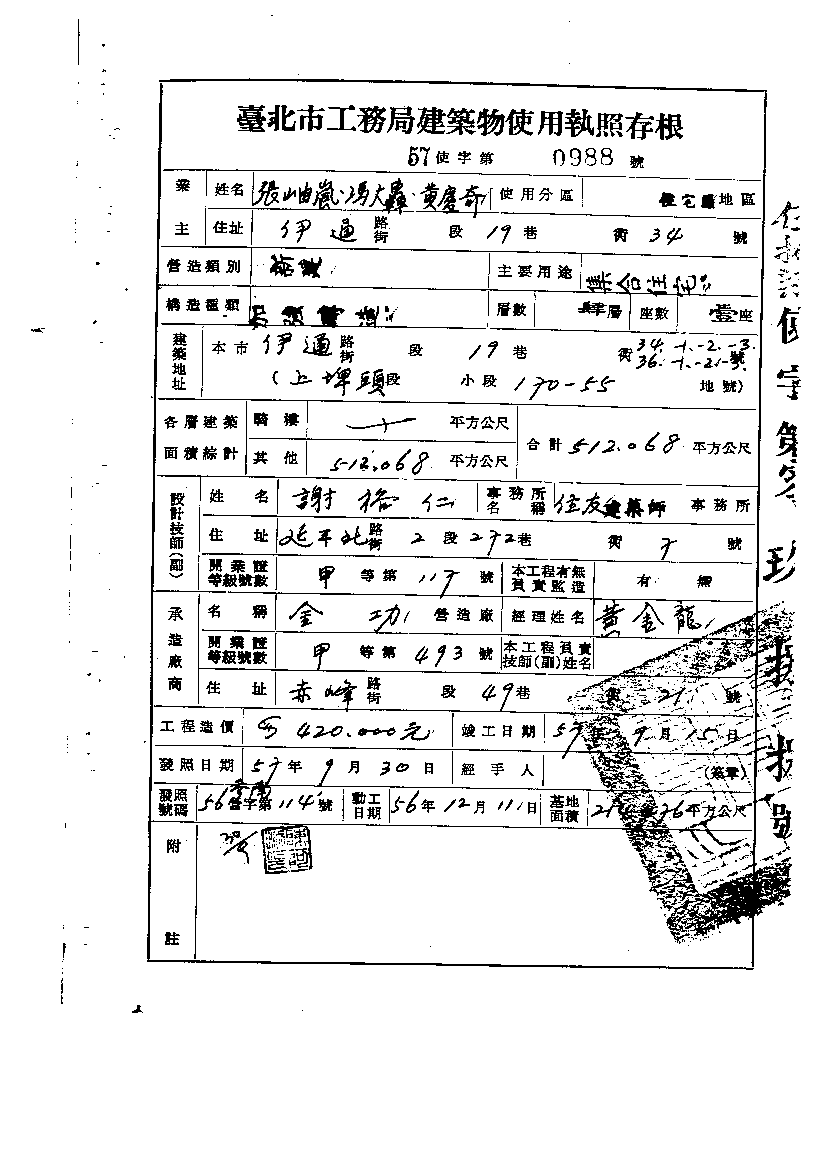 臺北市工務局建築物使用執照存根
57使字第 0988 號
業主 姓名 張岫嵐·馮大轟·黃慶奇 使用分區 住宅區地區
住址 伊通 路街 段 19 巷 衖 34 號
營造類別 新建 主要用途 集合住宅
構造種類 加強磚造 層數 層 座數 壹座
建築地址 本市 伊通 路街 段 19 巷 衖 34.-1.-2.-3. 36.-1.-2.-3. 號
(上埤頭段 小段 170-55 地號)
各層建築面積綜計 騎樓 平方公尺 合計 512.068 平方公尺
其他 512.068 平方公尺
設計技師(副) 姓名 謝格仁 事務所名稱 住友建築師事務所
住址 延平北 路街 2 段 272 巷 衖 7 號
開業證等級號數 甲 等第 117 號 本工程有無負責監造 有 無
承造廠商 名稱 金功 營造廠 經理姓名 黃金龍
開業證等級號數 甲 等第 493 號 本工程負責技師(副)姓名
住址 赤峰 路街 段 49 巷 衖 21 號
工程造價 420.000元 竣工日期 57年 9月 15日
發照日期 57年 9月 30日 經手人 (簽章)
發照號碼 56 營字第 114 號 動工日期 56年 12月 11日 基地面積 平方公尺
附註
使字第零玖捌捌號